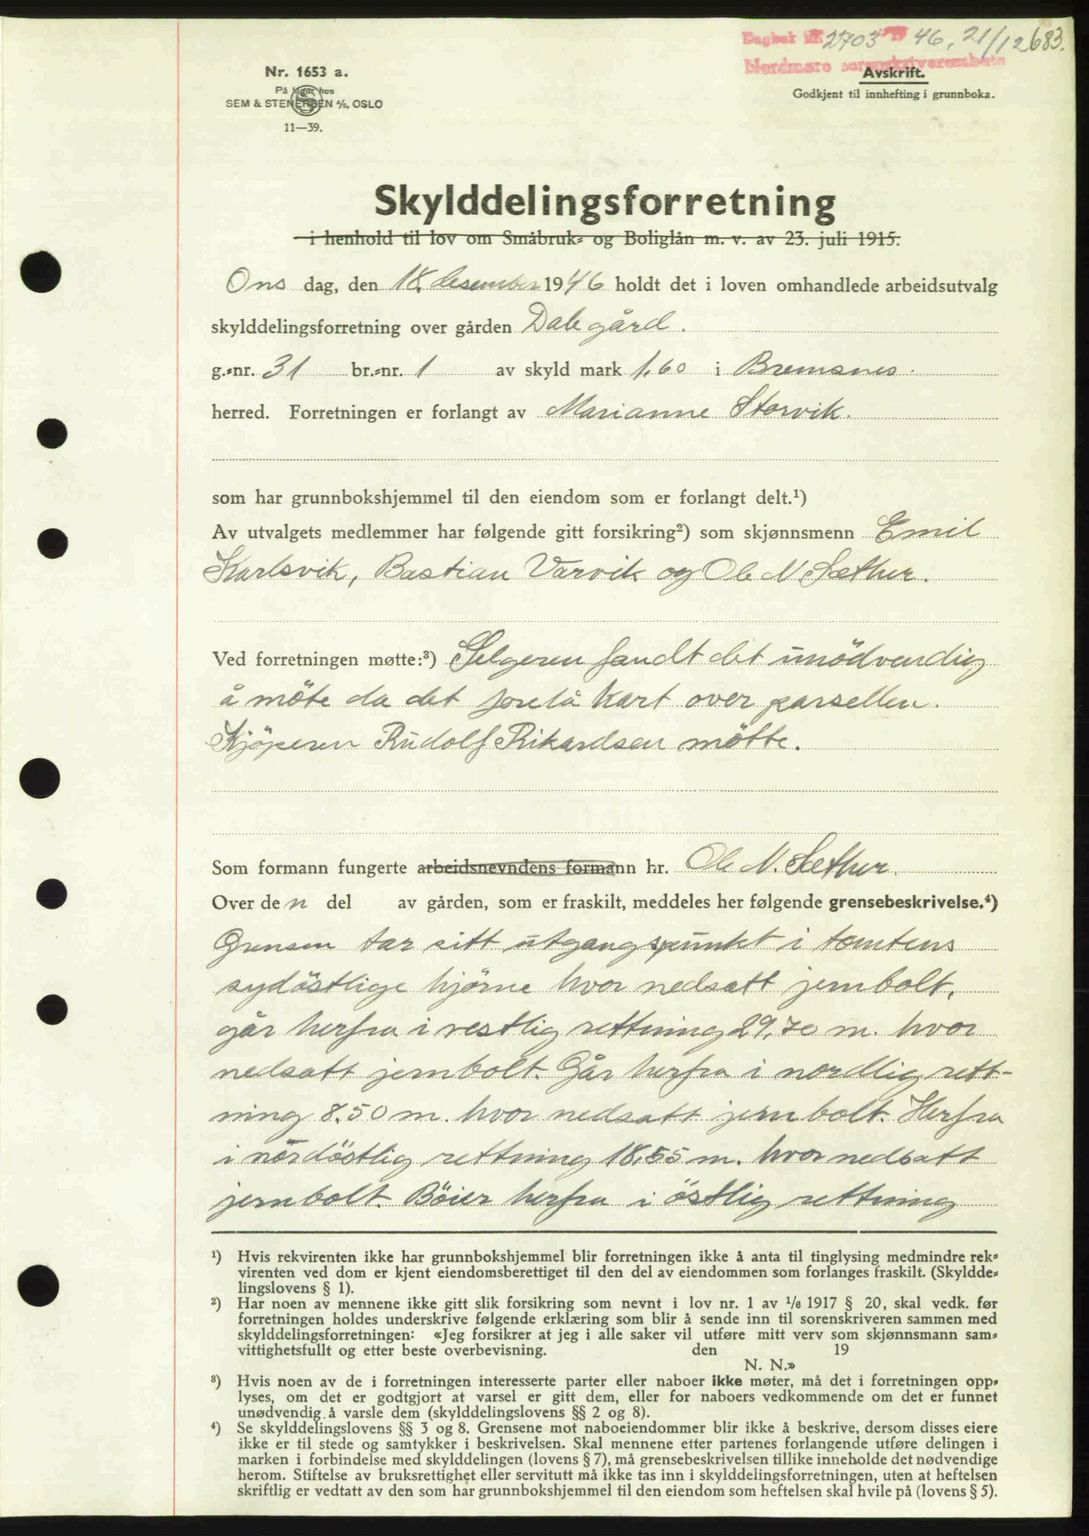 Dagbok nr. 2703 19 46, 21/12 683.
Nordmøre sorenskriverembete
Nr. 1653 a.
På lager hos
SEM & STENERSEN A/S, OSLO
11—39.
Avskrift.
Godkjent til innhefting i grunnboka.
Skylddelingsforretning
i henhold til lov om Småbruk- og Boliglån m. v. av 23. juli 1915.
Ons dag, den 18. desember 1946 holdt det i loven omhandlede arbeidsutvalg
skylddelingsforretning over gården Dale gård.
g.-nr. 31 br.-nr. 1 av skyld mark 1,60 i Bremsnes.
herred. Forretningen er forlangt av Marianne Storvik.
som har grunnbokshjemmel til den eiendom som er forlangt delt.¹)
Av utvalgets medlemmer har følgende gitt forsikring²) som skjønnsmenn Emil
Karlsvik, Bastian Varvik og Ole N Sæther.
Ved forretningen møtte:³) Selgeren fandt det unödvendig
å möte da det forelå kart over parsellen.
Kjöperen Rudolf Rikardsen mötte.
Som formann fungerte arbeidsnevndens formann hr. Ole N. Sæther.
Over den del av gården, som er fraskilt, meddeles her følgende grensebeskrivelse.⁴)
Grensen tar sitt utgangspunkt i tomtens
sydöstlige hjörne hvor nedsatt jernbolt,
går herfra i vestlig rettning 29,70 m. hvor
nedsatt jernbolt. Går herfra i nordlig rett-
ning 8,50 m. hvor nedsatt jernbolt. Herfra
i nordöstlig rettning 18,55 m. hvor nedsatt
jernbolt. Böier herfra i östlig rettning
¹) Hvis rekvirenten ikke har grunnbokshjemmel blir forretningen ikke å anta til tinglysing medmindre rek-
virenten ved dom er kjent eiendomsberettiget til den del av eiendommen som forlanges fraskilt. (Skyldde-
lingslovens § 1).
²) Har noen av mennene ikke gitt slik forsikring som nevnt i lov nr. 1 av 1/6 1917 § 20, skal vedk. før
forretningen holdes underskrive følgende erklæring som blir å sende inn til sorenskriveren sammen med
skylddelingsforretningen: «Jeg forsikrer at jeg i alle saker vil utføre mitt verv som skjønnsmann sam-
vittighetsfullt og etter beste overbevisning. den 19
N. N.»
³) Hvis noen av de i forretningen interesserte parter eller naboer ikke møter, må det i forretningen opp-
lyses, om det er godtgjort at varsel er gitt dem, eller for naboers vedkommende om det er funnet
unødvendig å varsle dem (skylddelingslovens §§ 2 og 8).
⁴) Se skylddelingslovens §§ 3 og 8. Grensene mot naboeiendommer blir ikke å beskrive, dersom disses eiere
ikke er til stede og samtykker i beskrivelsen. Skal mennene etter partenes forlangende utføre delingen i
marken i forbindelse med skylddelingen (lovens § 7), må grensebeskrivelsen tillike inneholde det nødvendige
herom. Stiftelse av bruksrettighet eller servitutt må ikke tas inn i skylddelingsforretningen, uten at heftelsen
skriftlig er vedtatt av den som har grunnbokshjemmel til den eiendom som heftelsen skal hvile på (lovens § 5).